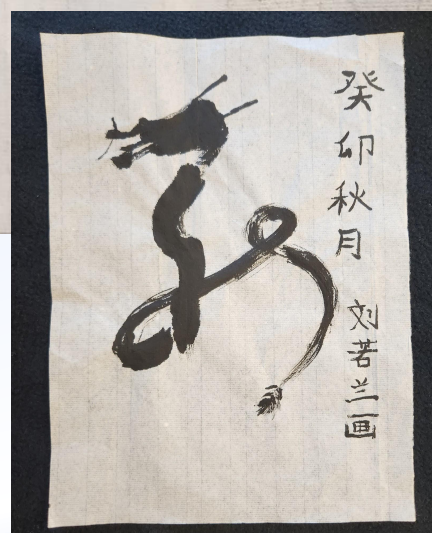 癸卯秋月
刘若兰画